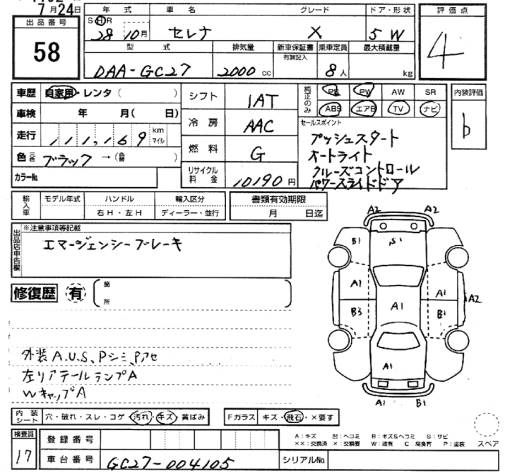 7月24日
出品番号 58
年式 車名 グレード ドア・形状 評価点
S H 28年10月 セレナ X 5W 4
型式 排気量 新車保証書 有類記入 乗車定員 最大積載量
DAA-GC27 2000cc 8人 kg
車歴 自家用・レンタ( ) シフト 1AT 純正のみ PS PW AW SR 内装評価
車検 年 月( 日) ABS エアB TV ナビ b
走行 111,169 km マイル 冷房 AAC セールスポイント
プッシュスタート
オートライト
クルーズコントロール
パワースライドドア
色 ブラック→( ) 燃料 G
カラーNo. リサイクル料金 10190円
輸入車 モデル年式 ハンドル 輸入区分 書類有効期限
年 右H・左H ディーラー・並行 月 日迄
※注意事項等記載
出品店申告欄
エマージェンシーブレーキ
修復歴 有 箇所
A2
B1 S1 B1
A1 A1 A1 A2
B3 B1
A1
A2
外装A.U.S、Pシミ、Pアセ
左リアテールランプA
WキャップA
内装シート 穴・破れ・スレ・コゲ 汚れ キズ 黄ばみ Fガラス キズ・飛石・×要す
検査員 17 登録番号
A:キズ U:ヘコミ B:キズ&ヘコミ S:サビ
XX:交換済 X:交換要 W:波有 C:腐食有 P:塗装 スペア
車台番号 GC27-004105 シリアルNo.